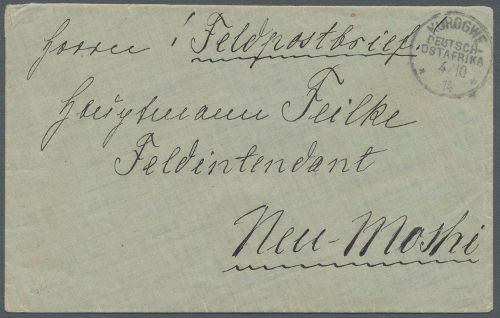 Herrn! Feldpostbrief!
Hauptmann Feilke
Feldintendant
Neu-Moshi
KOROGWE
DEUTSCH-
OSTAFRIKA
4/10
14